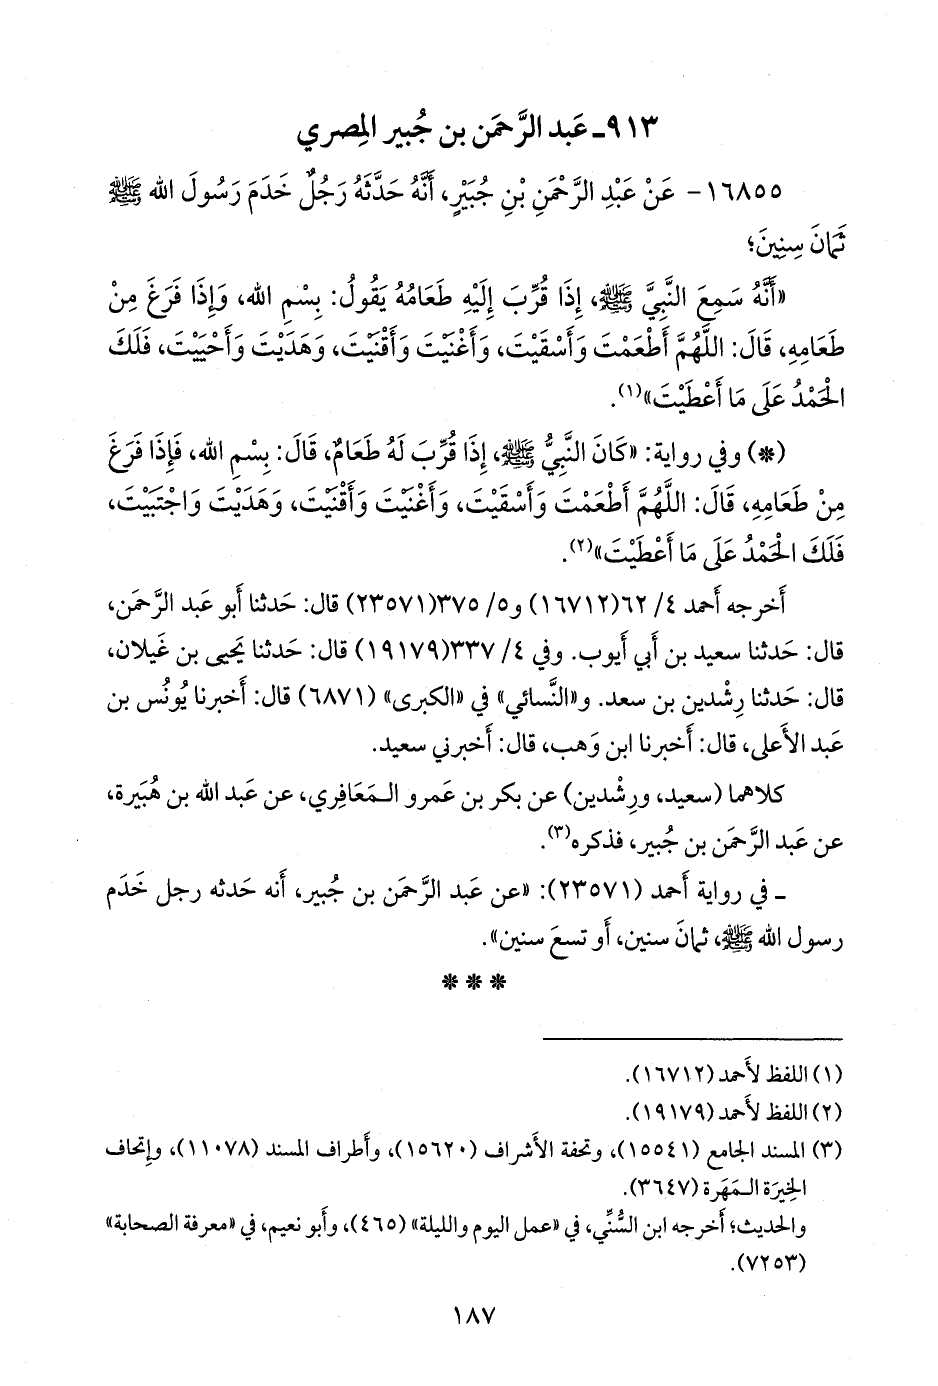 ٩١٣ـ عَبد الرَّحمَن بن جُبير المِصري
١٦٨٥٥- عَنْ عَبْدِ الرَّحْمَنِ بْنِ جُبَيْرٍ، أَنَّهُ حَدَّثَهُ رَجُلٌ خَدَمَ رَسُولَ الله ﷺ
ثَمَانَ سِنِينَ؛
«أَنَّهُ سَمِعَ النَّبِيَّ ﷺ، إِذَا قُرِّبَ إِلَيْهِ طَعَامُهُ يَقُولُ: بِسْمِ الله، وَإِذَا فَرَغَ مِنْ
طَعَامِهِ، قَالَ: اللَّهُمَّ أَطْعَمْتَ وَأَسْقَيْتَ، وَأَغْنَيْتَ وَأَقْنَيْتَ، وَهَدَيْتَ وَأَحْيَيْتَ، فَلَكَ
الْحَمْدُ عَلَى مَا أَعْطَيْتَ»(١).
(*) وفي رواية: «كَانَ النَّبِيُّ ﷺ، إِذَا قُرِّبَ لَهُ طَعَامٌ، قَالَ: بِسْمِ الله، فَإِذَا فَرَغَ
مِنْ طَعَامِهِ، قَالَ: اللَّهُمَّ أَطْعَمْتَ وَأَسْقَيْتَ، وَأَغْنَيْتَ وَأَقْنَيْتَ، وَهَدَيْتَ وَاجْتَبَيْتَ،
فَلَكَ الْحَمْدُ عَلَى مَا أَعْطَيْتَ»(٢).
أَخرجه أَحمد ٤/ ٦٢(١٦٧١٢) و٥/ ٣٧٥(٢٣٥٧١) قال: حَدثنا أَبو عَبد الرَّحمَن،
قال: حَدثنا سعيد بن أَبي أَيوب. وفي ٤/ ٣٣٧(١٩١٧٩) قال: حَدثنا يَحيى بن غَيلان،
قال: حَدثنا رِشْدين بن سعد. و«النَّسائي» في «الكبرى» (٦٨٧١) قال: أَخبرنا يُونُس بن
عَبد الأَعلى، قال: أَخبرنا ابن وَهب، قال: أَخبرني سعيد.
كلاهما (سعيد، ورِشْدين) عن بكر بن عَمرو المَعَافِري، عن عَبد الله بن هُبَيرة،
عن عَبد الرَّحمَن بن جُبير، فذكره(٣).
ـ في رواية أَحمد (٢٣٥٧١): «عن عَبد الرَّحمَن بن جُبير، أَنه حَدثه رجل خَدَم
رسول الله ﷺ، ثمانَ سنين، أَو تسعَ سنين».
* * *
(١) اللفظ لأَحمد (١٦٧١٢).
(٢) اللفظ لأَحمد (١٩١٧٩).
(٣) المسند الجامع (١٥٥٤١)، وتحفة الأَشراف (١٥٦٢٠)، وأَطراف المسند (١١٠٧٨)، وإِتحاف
الخِيرَة المَهَرة (٣٦٤٧).
والحديث؛ أَخرجه ابن السُّنِّي، في «عمل اليوم والليلة» (٤٦٥)، وأَبو نعيم، في «معرفة الصحابة»
(٧٢٥٣).
١٨٧